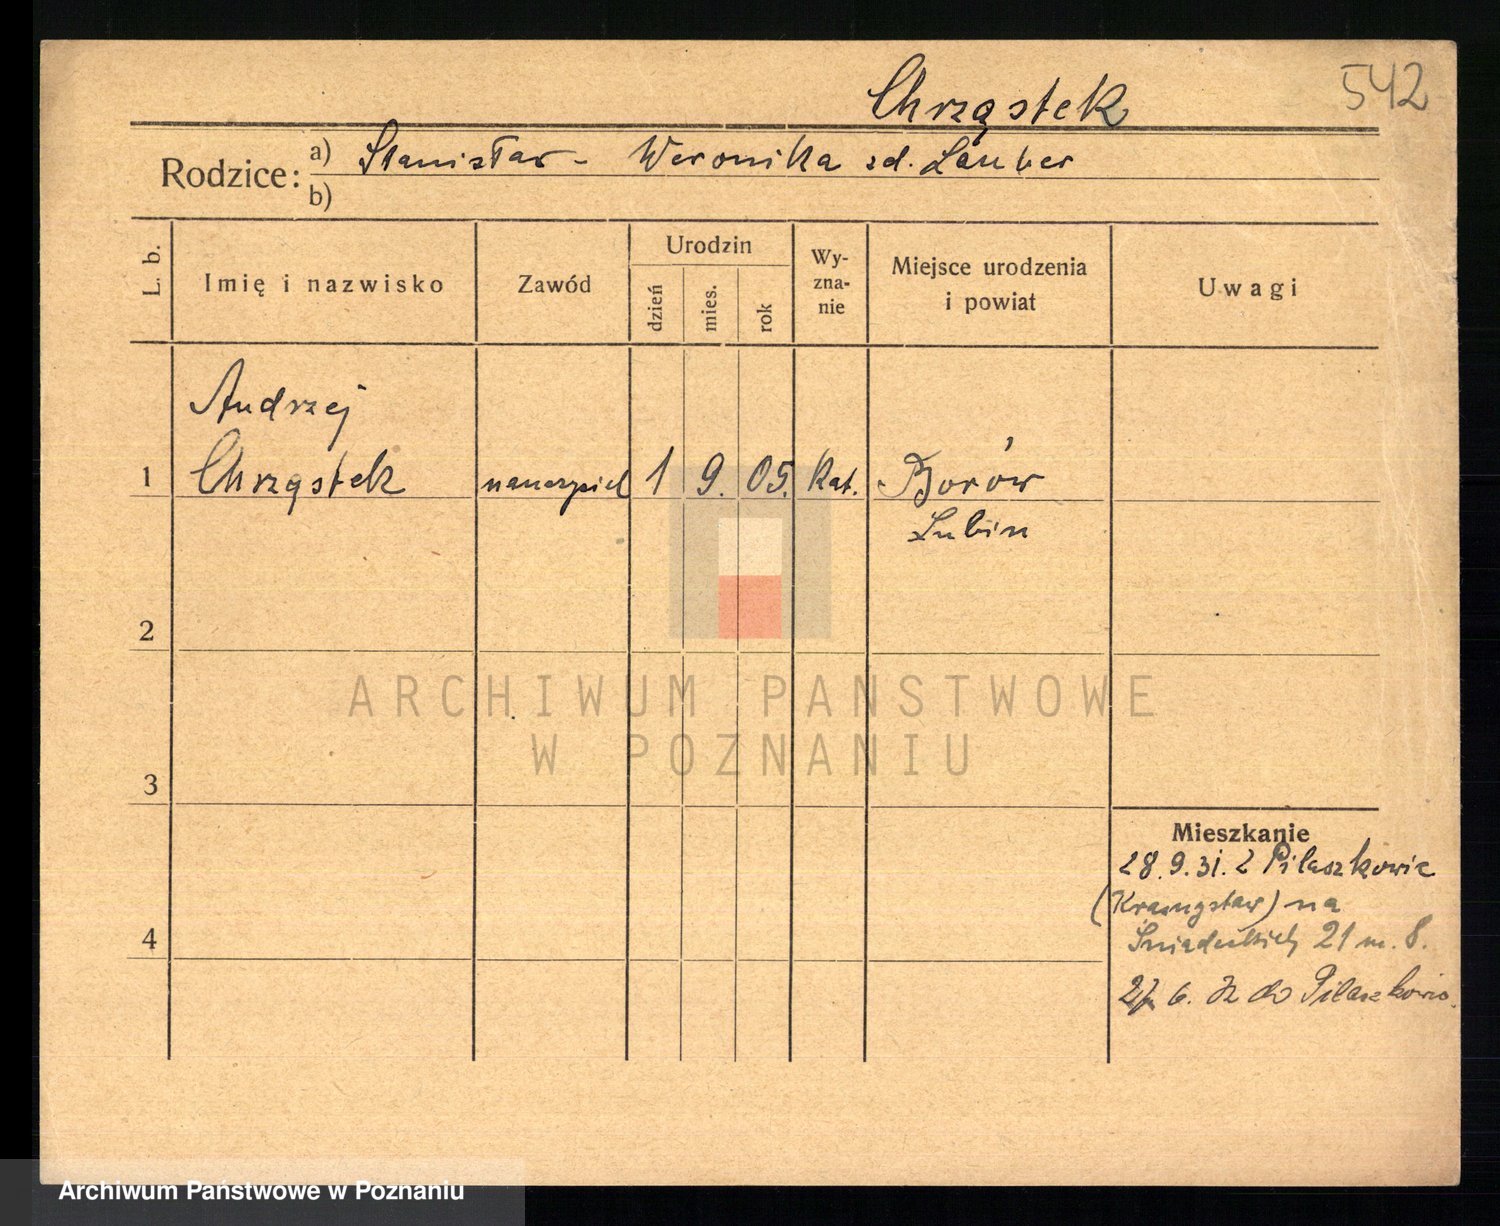 Chrząstek
542
Rodzice: a) Stanisław - Weronika zd. Lauber
b)
L. b. Imię i nazwisko Zawód Urodzin dzień mies. rok Wy-zna-nie Miejsce urodzenia i powiat Uwagi
Andrzej
1 Chrząstek nauczyciel 1 9. 05. Kat. Borów
Lubin
2
3
Mieszkanie
28.9.31. z Pilaszkowic
(Krasnystaw) na
4 Śniadeckich 21 m. 8.
6. 32 do Pilaszkowic.
ARCHIWUM PAŃSTWOWE
W POZNANIU
Archiwum Państwowe w Poznaniu